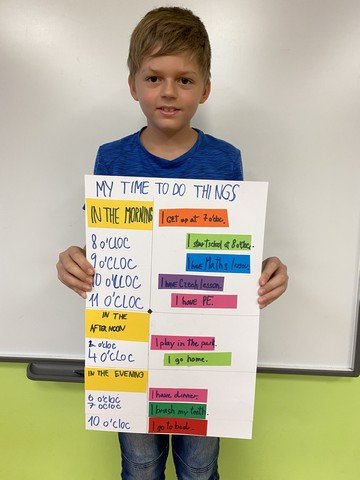 MY TIME TO DO THINGS
IN THE MORNING
I get up at 7 o'cloc.
8 o'CLOC
I start school at 8 o'cloc.
9 o'CLOC
I have Maths lesson.
10 o'CLOC
I have Czech lesson.
11 o'CLOC
I have PE.
IN THE
AFTERNOON
o'cloc
I play in the park.
4 o'CLOC
I go home.
IN THE EVENING
6 o'cloc
I have dinner.
7 o'cloc
I brush my teeth.
10 o'CLOC
I go to bed.